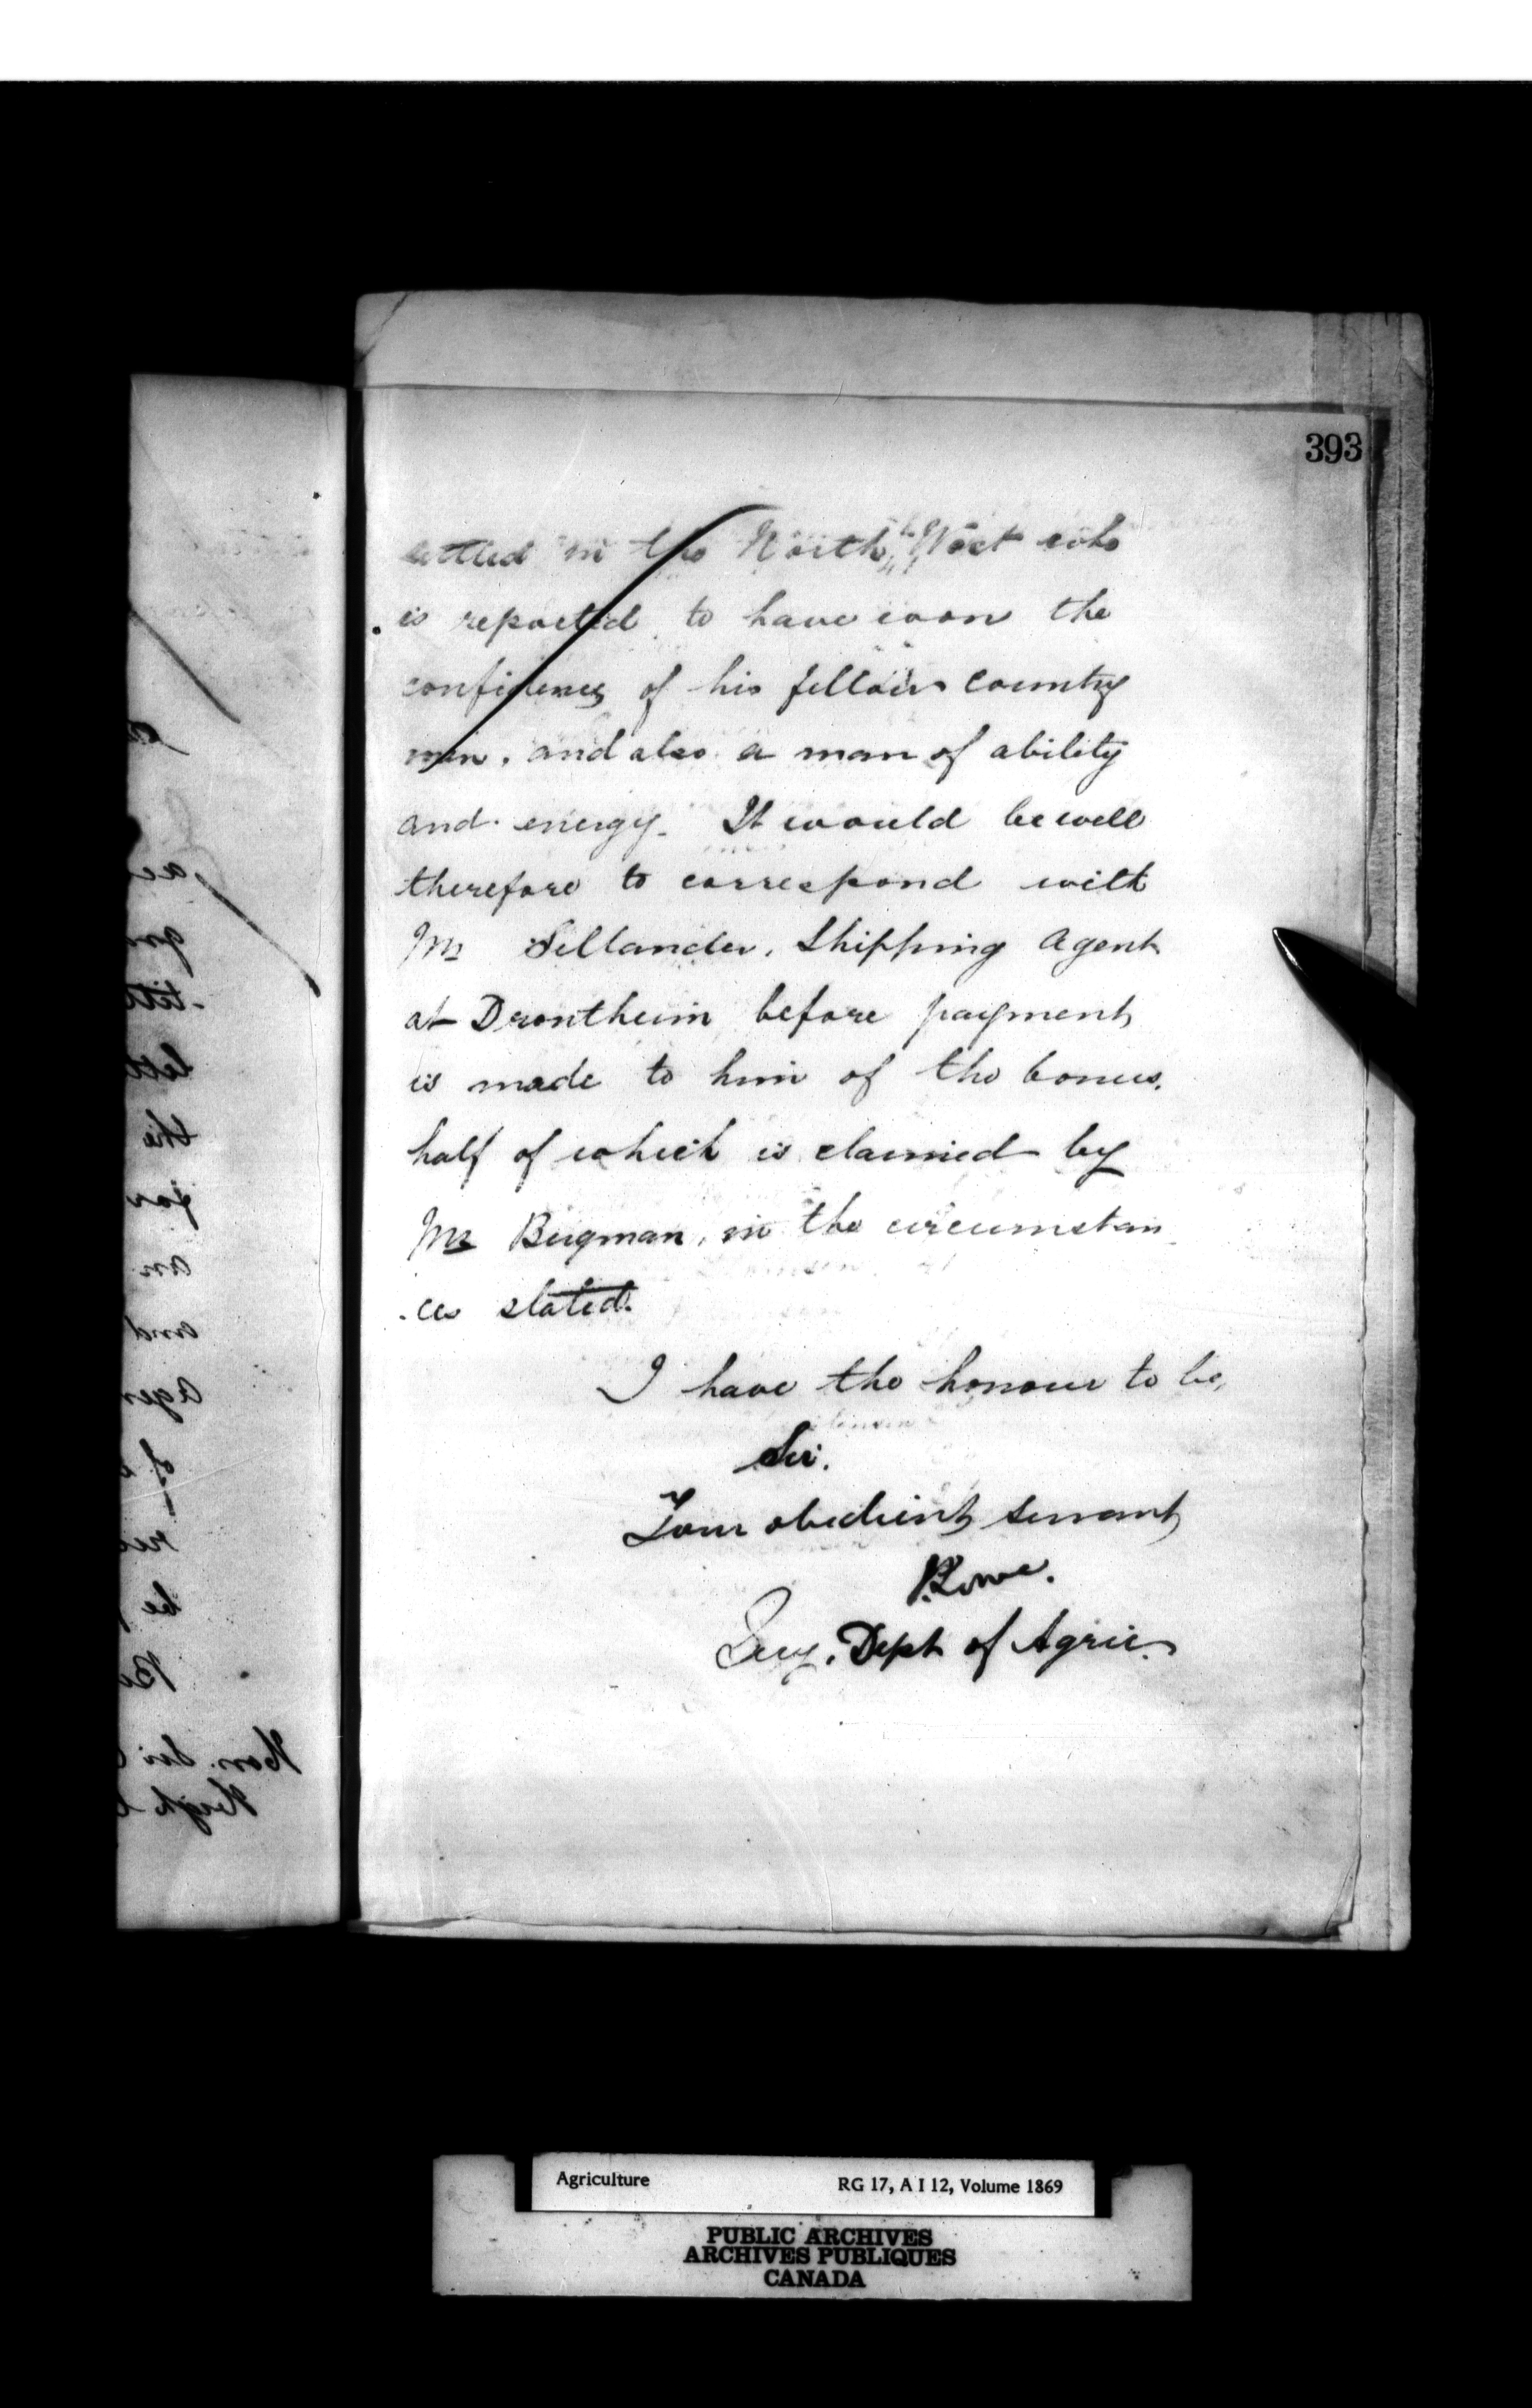 393
settled in the North West who
is reported to have won the
confidence of his fellow country
men, and also a man of ability
and energy. It would be well
therefore to correspond with
Mr Sellander, Shipping Agent
at Drontheim before payment
is made to him of the bonus,
half of which is claimed by
Mr Bugman, in the circumstan
-ces stated.
I have the honour to be,
Sir.
Your obedient servant
J. Lowe.
Secy. Dept of Agric.
Agriculture RG 17, A I 12, Volume 1869
PUBLIC ARCHIVES
ARCHIVES PUBLIQUES
CANADA